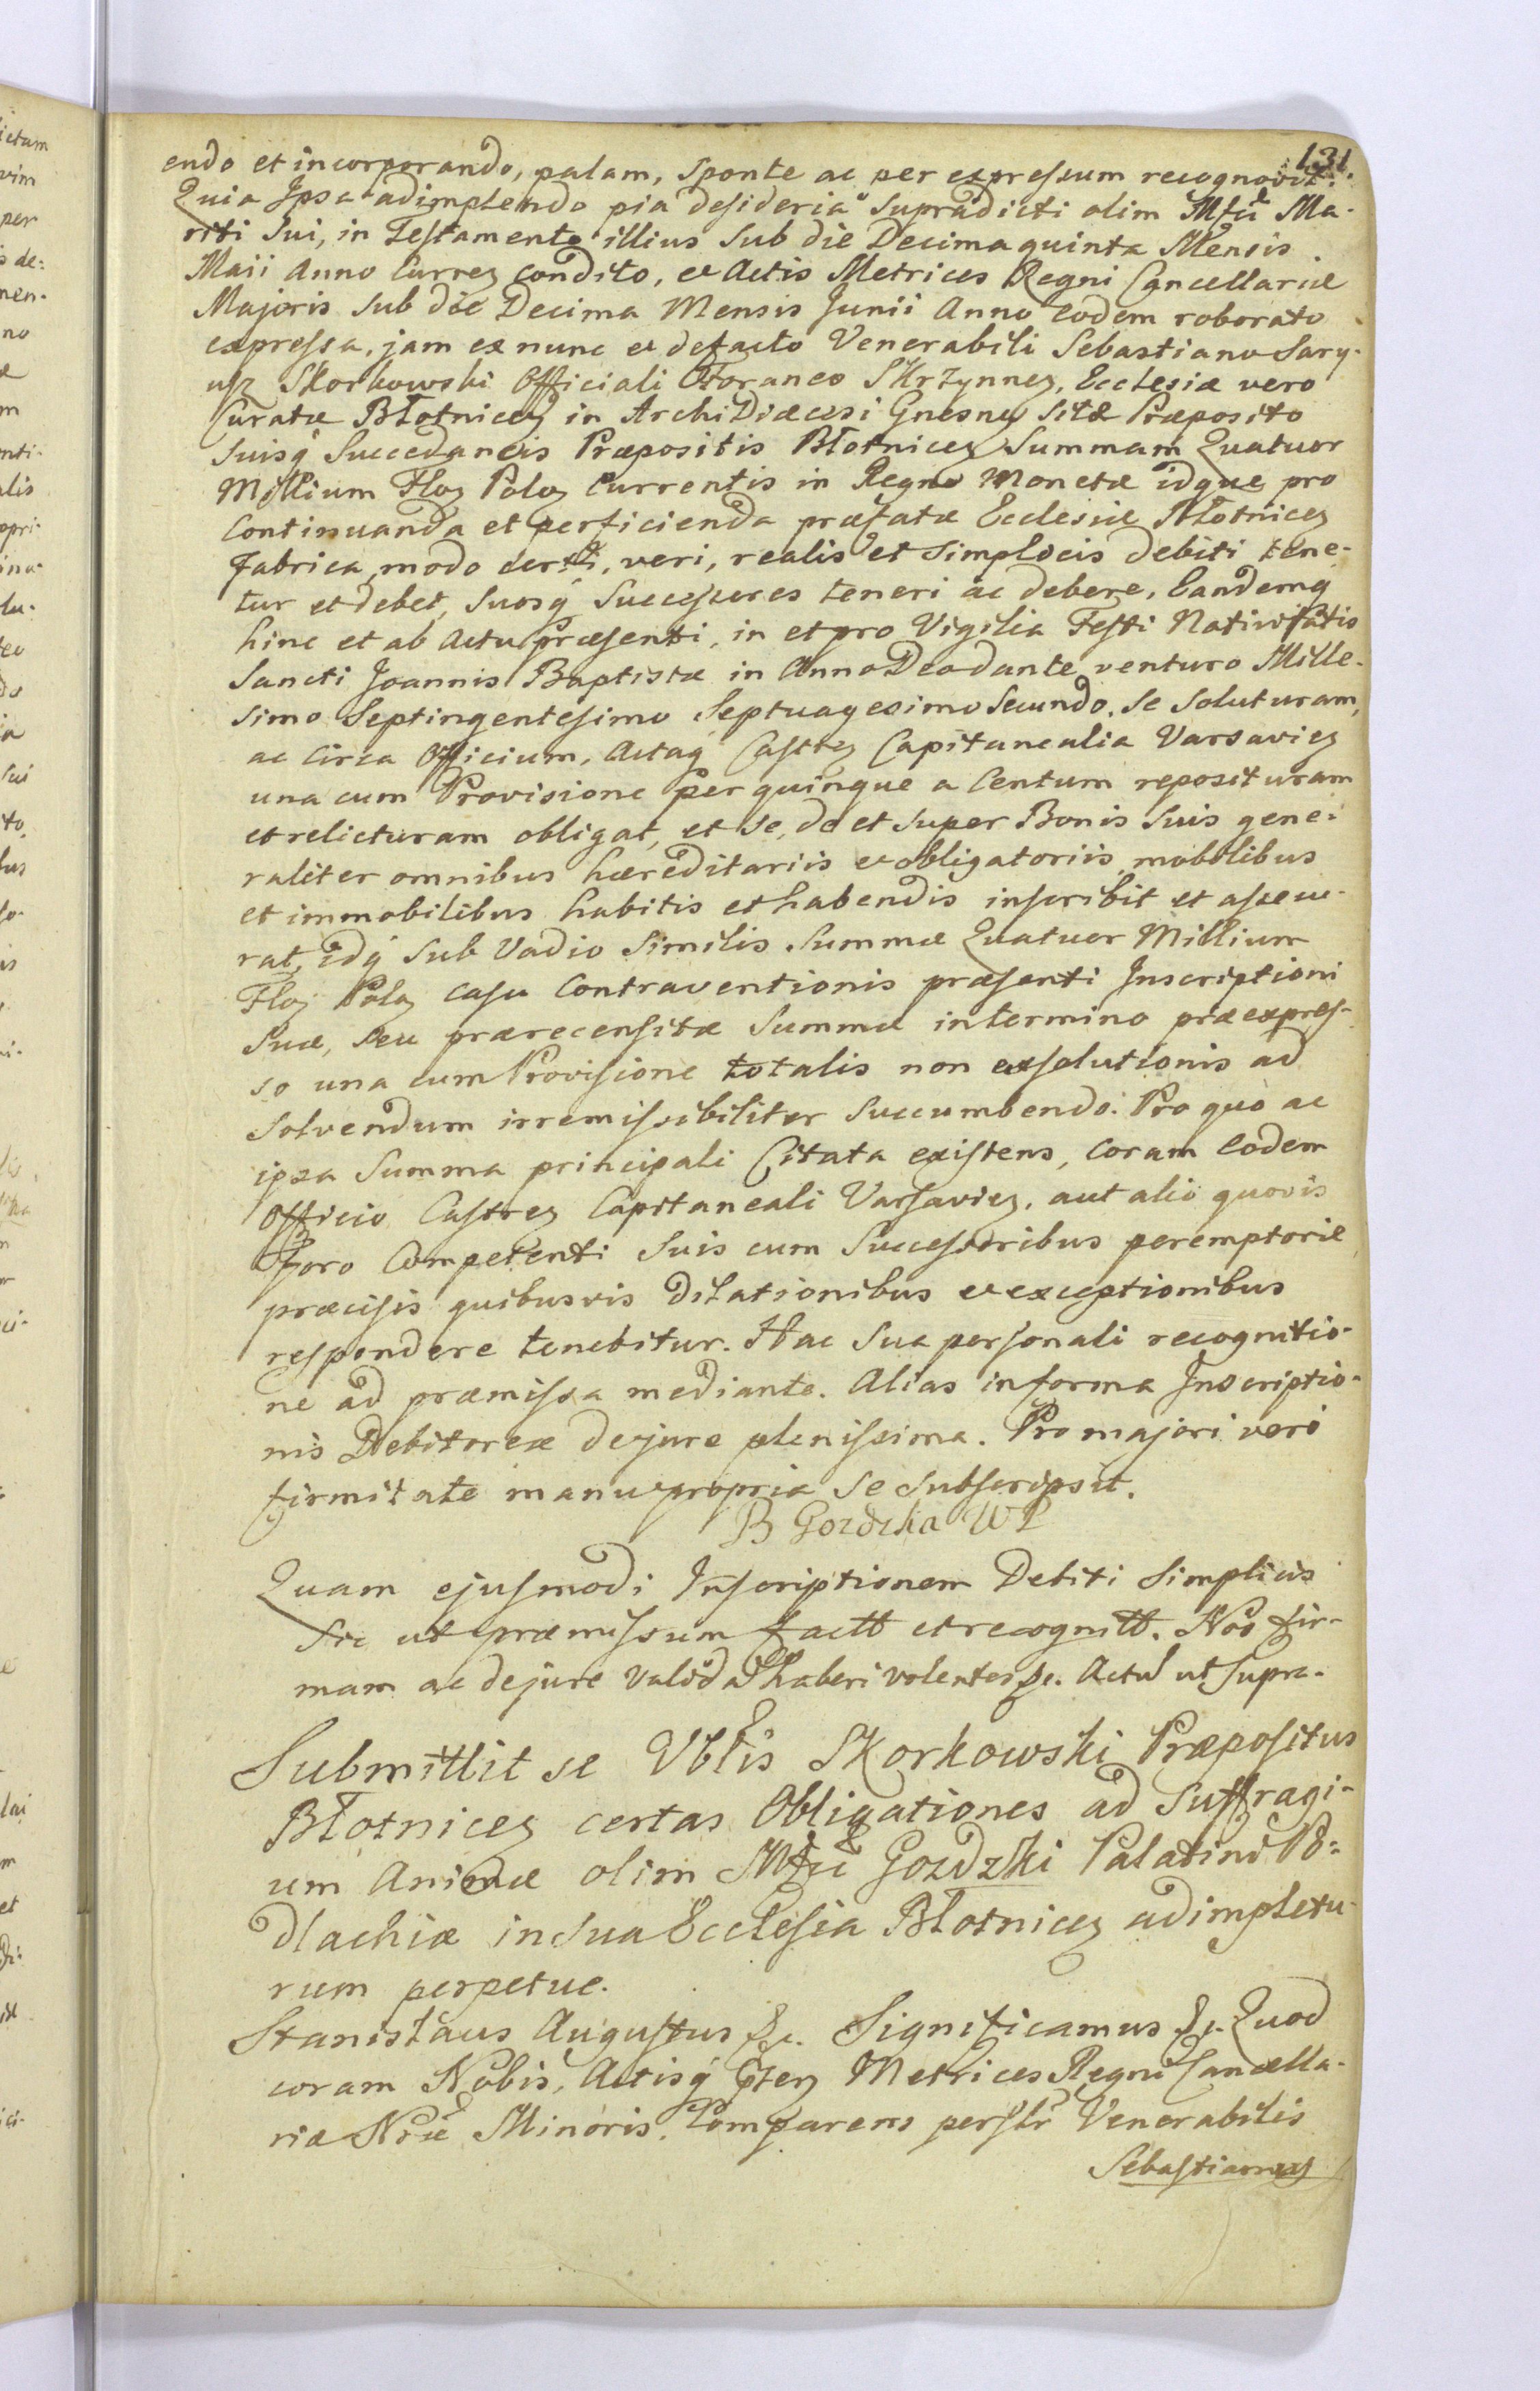 131.
endo et incorporando, palam, sponte ac per expressum recognovit.
Quia Ipsa adimplendo pia desideria supradicti olim Mfci Ma-
riti Sui, in Testamento illius sub die Decima quinta Mensis
Maii Anno Currẽ condito, et Actis Metrices Regni Cancellariæ
Majoris sub die Decima Mensis Junii Anno eodem roborato
expressa, jam ex nunc et defacto Venerabili Sebastiano Sary-
usz Skorkowski Officiali Foraneo Skrzynneñ, Ecclesiæ vero
Curatæ Błotniceñ in Archi Diæcesi Gnesneñ sitæ Præposito
suisq̃ Succedaneis Præpositis Błotniceñ Summam Quatuor
Millium Floꝝ Poloꝝ Currentis in Regno Monetæ idque pro
Continuanda et perficienda præfatæ Ecclesiæ Błotniceñ
fabrica, modo certi, veri, realis et simplicis debiti tene-
tur et debet, suosq̃ Successores teneri ac debere, Eandemq̃
hinc et ab Actu præsenti, in et pro Vigilia Festi Nativitatis
Sancti Joannis Baptistæ in Anno Deo dante venturo Mille-
simo Septingentesimo Septuagesimo Secundo, se soluturam,
ac Circa Officium, Actaq̃ Castreñ Capitanealia Varsavieñ
una cum Provisione per quinque a Centum reposituram
et relicturam obligat, et se, de et super Bonis suis gene-
raliter omnibus hæreditariis et obligatoriis mobilibus
et immobilibus habitis et habendis inscribit et assecu-
rat, idq̃ sub Vadio similis Summæ Quatuor Millium
Floꝝ Poloꝝ casu Contraventionis præsenti Inscriptioni
Suæ, seu prærecensitæ Summæ in termino præexpres-
so una cum Provisione totalis non exsolutionis ad
solvendum irremissibiliter succumbendo. Pro quo ac
ipsa Summa principali Citata existens, coram eodem
Officio Castreñ Capitaneali Varsavieñ, aut alio quovis
Foro Competenti suis cum Successoribus peremptorie
præcisis quibusvis dilationibus et exceptionibus
respondere tenebitur. Hac sua personali recognitio-
ne ad præmissa mediante. Alias in forma Inscriptio-
nis Debitoreæ de jure plenissima. Pro majori vero
firmitate manu propria se subscripsit.
B Gozdzka WP
Quam ejusmodi Inscriptionem Debiti simplicis
sic ut præmissum factt et recognitt. Nos fir-
mam ac de jure validã haberi volentes &c. Actũ ut supra.
Submittit se Vblis Skorkowski Præpositus
Błotniceñ certas Obligationes ad suffragi-
um Animæ olim Mfci Gozdzki Palatini Po-
dlachiæ in sua Ecclesia Błotniceñ adimpletu-
rum perpetue.
Stanislaus Augustus &c. Significamus &c. Quod
coram Nobis, Actisq̃ pñteñ Metrices Regni Cancella-
riæ Nræ Minoris. Comparens persłr Venerabilis
Sebastianus